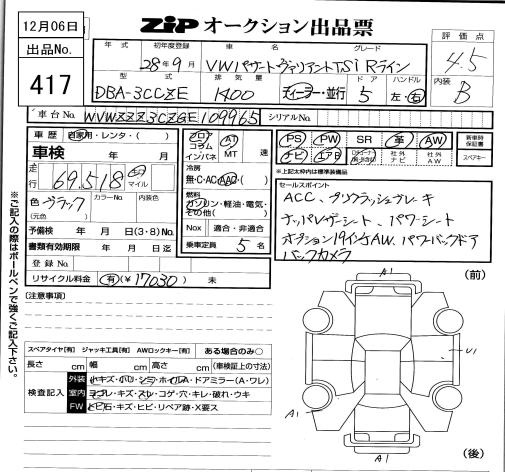 12月06日
出品No.
417
ZiP オークション出品票
評価点
4.5
内装
B
年式 初年度登録 車名 グレード
28年9月 VWパサートヴァリアントTSi Rライン
型式 排気量 ドア ハンドル
DBA-3CCZE 1400 ディーラー・並行 5 左・右
車台No. WVWZZZ3CZGE109965 シリアルNo.
車歴 自家用・レンタ・( )
車検 年 月
走行 69,518 キロ マイル
色 ブラック (元色) カラーNo. 内装色
予備検 年 月 日(3・8)No.
書類有効期限 年 月 日迄
登録No.
リサイクル料金 有(¥17030) 未
フロア コラム インパネ AT MT 速
冷房
無・C・AC・AAC・( )
燃料
ガソリン・軽油・電気・その他( )
Nox 適合・非適合
乗車定員 5 名
PS PW SR 革 AW
ナビ エアB 社外ナビ 社外AW
新車時保証書
スペアキー
※上記太枠内は標準装備品
セールスポイント
ACC、プリクラッシュブレーキ
ナッパレザーシート、パワーシート
オプション19インチAW、パワーバックドア
バックカメラ
※ご記入の際はボールペンで強くご記入下さい。
[注意事項]
スペアタイヤ[有] ジャッキ工具[有] AWロックキー[有] ある場合のみ○
長さ cm 幅 cm 高さ cm (車検証上の寸法)
検査記入
外装 小キズ・小ハリ・シミ・ホイルA・ドアミラー(A・ワレ)
室内 ヨゴレ・キズ・スレ・コゲ・穴・キレ・破れ・ウキ
FW トビ石・キズ・ヒビ・リペア跡・X要ス
(前)
A1
U1
A1
A1
(後)